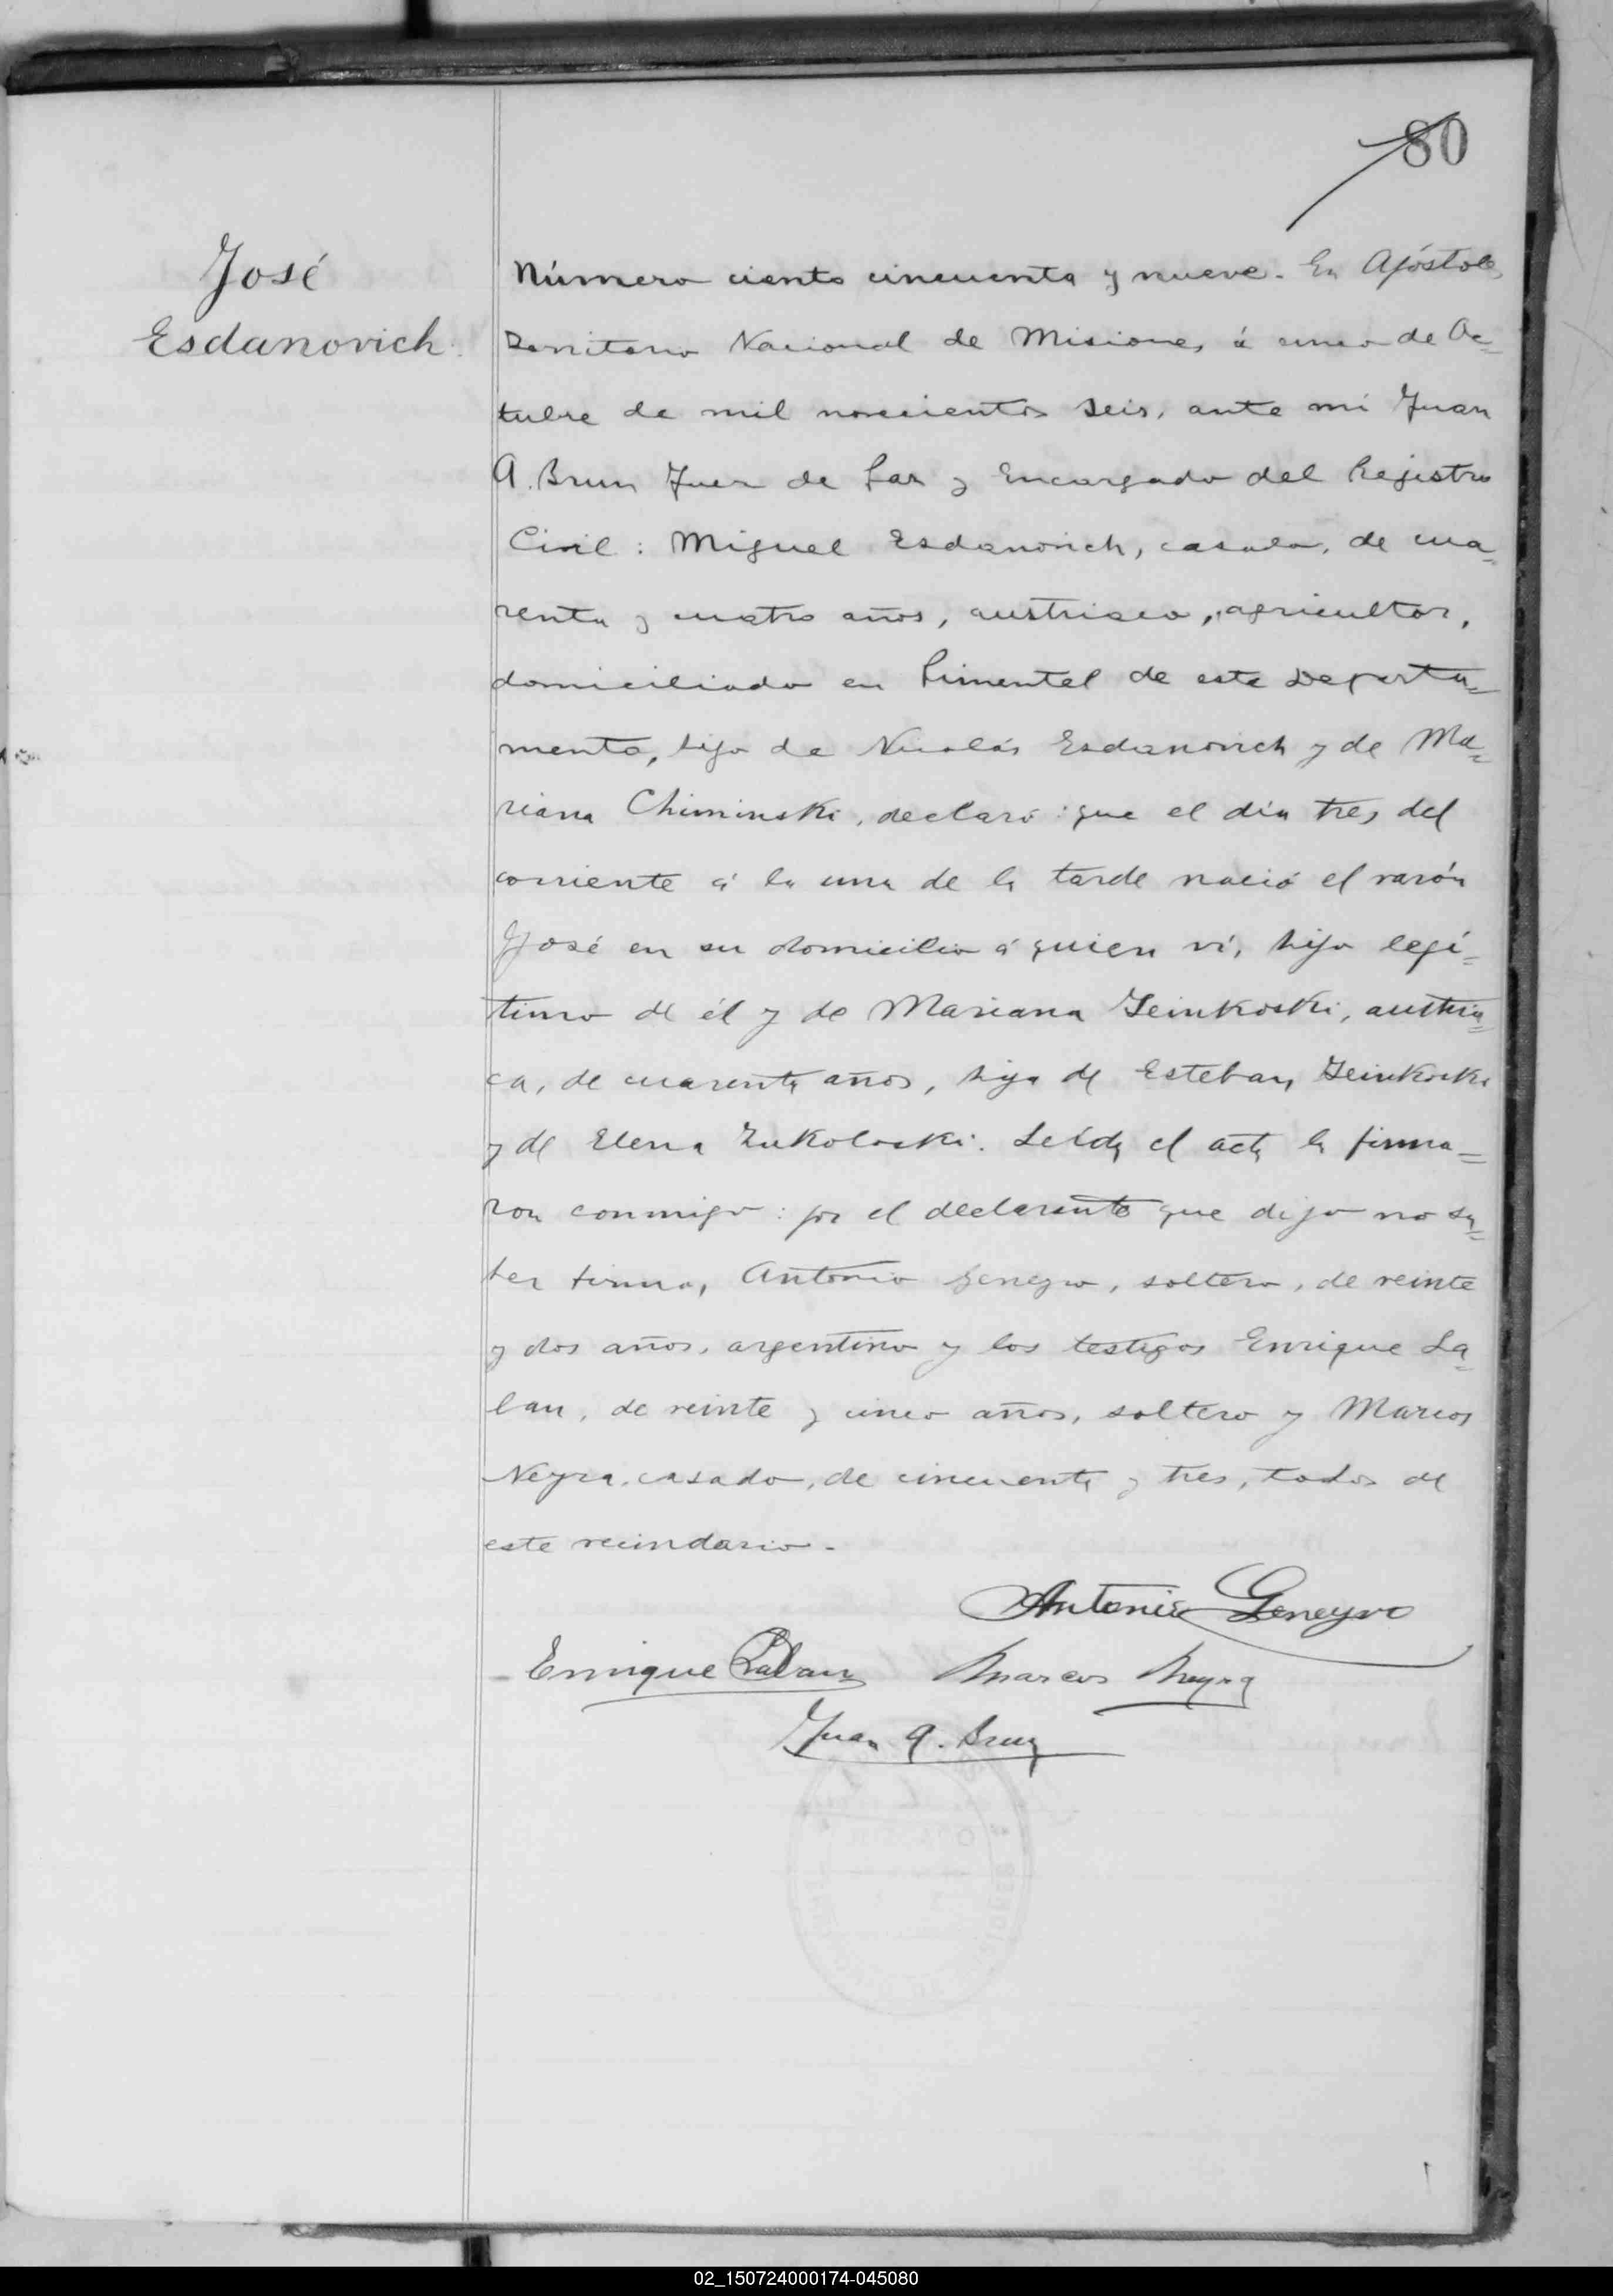 80
José
Esdanovich.
Número ciento cincuenta y nueve. En Apóstoles
Territorio Nacional de Misiones, á cinco de Oc=
tubre de mil novecientos seis, ante mi Juan
A. Brun Juez de Paz y Encargado del Registro
Civil: Miguel Esdanovich, casado, de cua=
renta y cuatro años, austriaco, agricultor,
domiciliado en Pimentel de este Departa=
mento, hijo de Nicolás Esdanovich y de Ma=
riana Chiminski, declaró: que el día tres del
corriente á la una de la tarde nació el varón
José en su domicilio á quien ví, hijo legí=
timo de él y de Mariana Zeinkoski, austria=
ca, de cuarenta años, hija de Esteban Zeinkoski
y de Elena Zukoloski. Leída el acta la firma=
ron conmigo: por el declarante que dijo no sa=
ber firmar, Antonio Geneyro, soltero, de veinte
y dos años, argentino y los testigos Enrique La=
lan, de veinte y cinco años, soltero y Marcos
Neyra, casado, de cincuenta y tres, todos de
este vecindario.
Antonio Geneyro
Enrique Lalan Marcos Neyra
Juan A. Brun
02_150724000174-045080